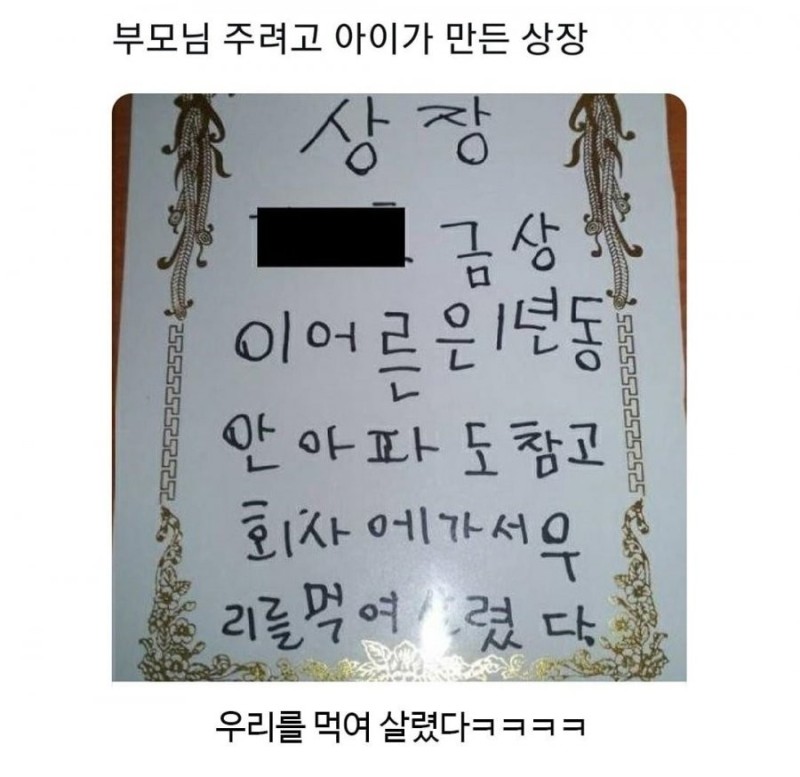 부모님 주려고 아이가 만든 상장
상장
금상
이어른은1년동
안아파도참고
회사에가서우
리를먹여살렸다.
우리를 먹여 살렸다ㅋㅋㅋㅋ